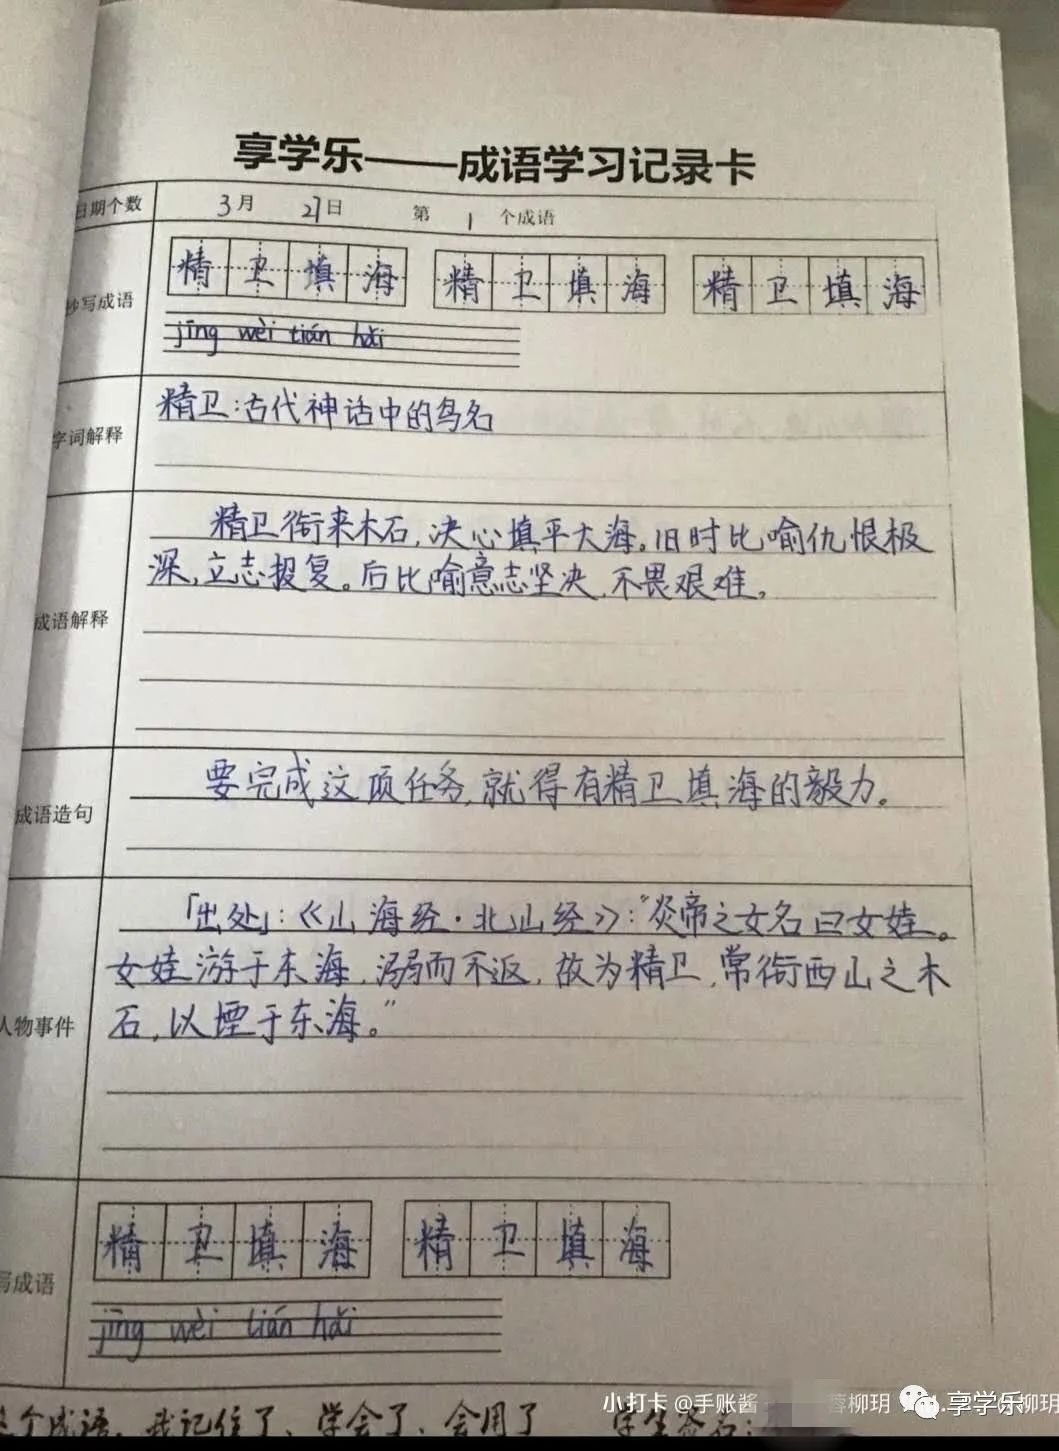 享学乐——成语学习记录卡
日期个数 3月 27日 第 1 个成语
精卫填海 精卫填海 精卫填海
抄写成语
jīng wèi tián hǎi
精卫:古代神话中的鸟名
字词解释
精卫衔来木石,决心填平大海。旧时比喻仇恨极
深,立志报复。后比喻意志坚决,不畏艰难。
成语解释
要完成这项任务,就得有精卫填海的毅力。
成语造句
「出处」:《山海经·北山经》:“炎帝之女名曰女娃。
女娃游于东海,溺而不返,故为精卫,常衔西山之木
石,以堙于东海。”
人物事件
精卫填海 精卫填海
写成语
jīng wèi tián hǎi
个成语,我记住了、学会了、会用了 学生签名:
小打卡 @手账酱 蓉柳玥
享学乐